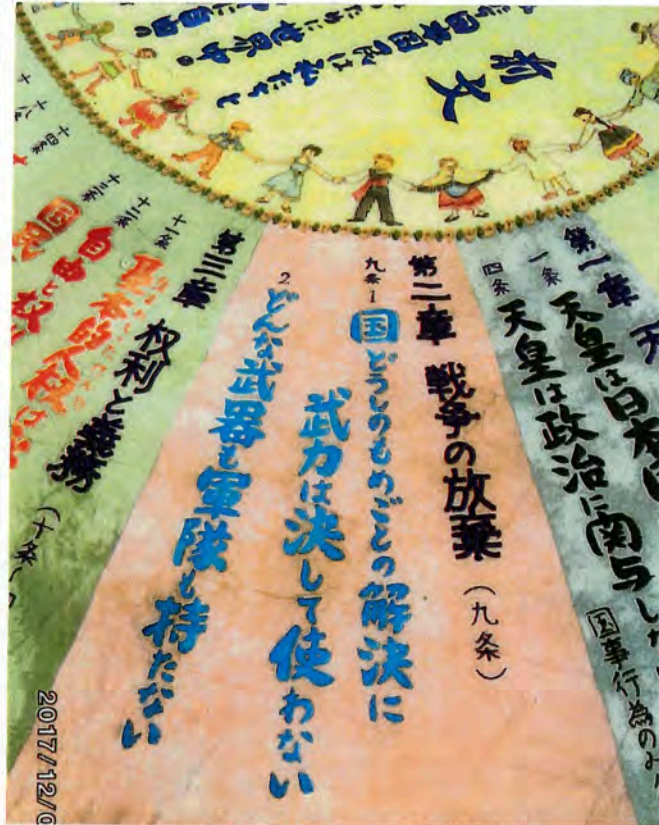 前文
日本国民は
ために世界中の
に自由
第一章 天
一条 天皇は日本
四条 天皇は政治に関与しない
国事行為のみ
第二章 戦争の放棄(九条)
九条1 国どうしのもめごとの解決に
武力は決して使わない
2 どんな武器も軍隊も持たない
第三章 权利と義務(十条
十一条 基本的人権は
十二条 自由と
十三条 国民
十四条
十八
2017/12/0